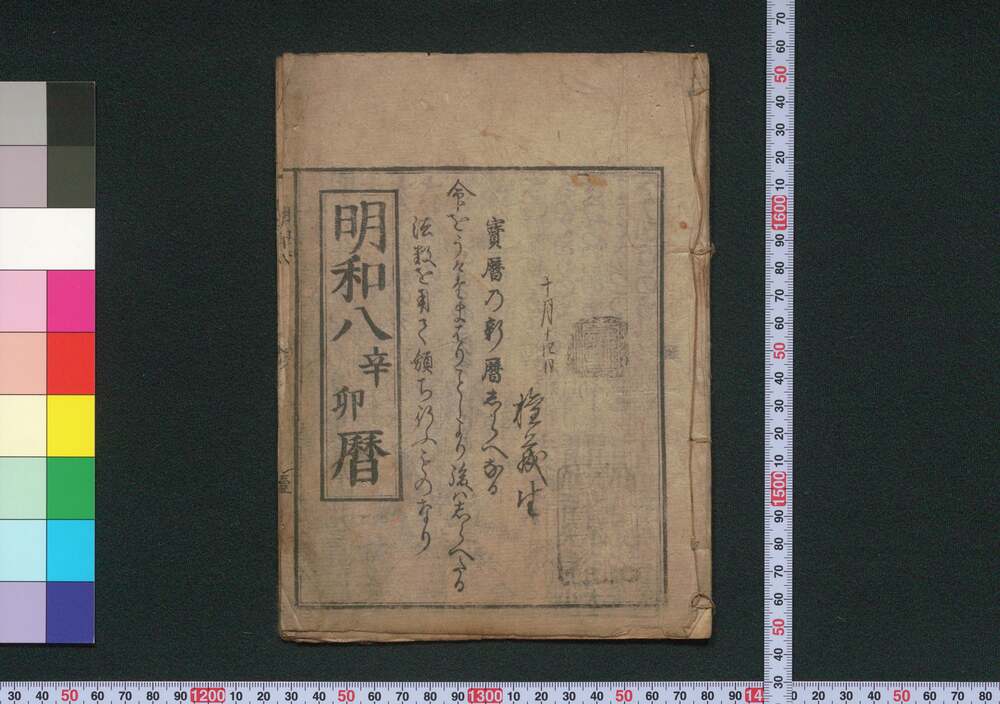 寶暦乃新暦志らへなる
命をうけたまはりことしより後ハ志らへたる
法数を用ひて頒ち行ふものなり
明和八辛卯暦
70 60 50 40 30 20 10 1600 90 80 70 60 50 40 30 20 10 1500 90 80 70 60 50 40 30
30 40 50 60 70 80 90 1200 10 20 30 40 50 60 70 80 90 1300 10 20 30 40 50 60 70 80 90 14
20 30 40 50 60 70 80